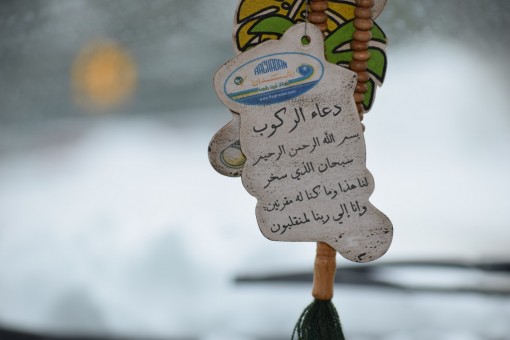 دعاء الركوب
بسم الله الرحمن الرحيم
سبحان الذي سخر
لنا هذا وما كنا له مقرنين
وإنا إلي ربنا لمنقلبون